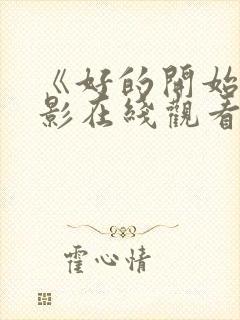 《好的開始
影在綫觀看
霍心情